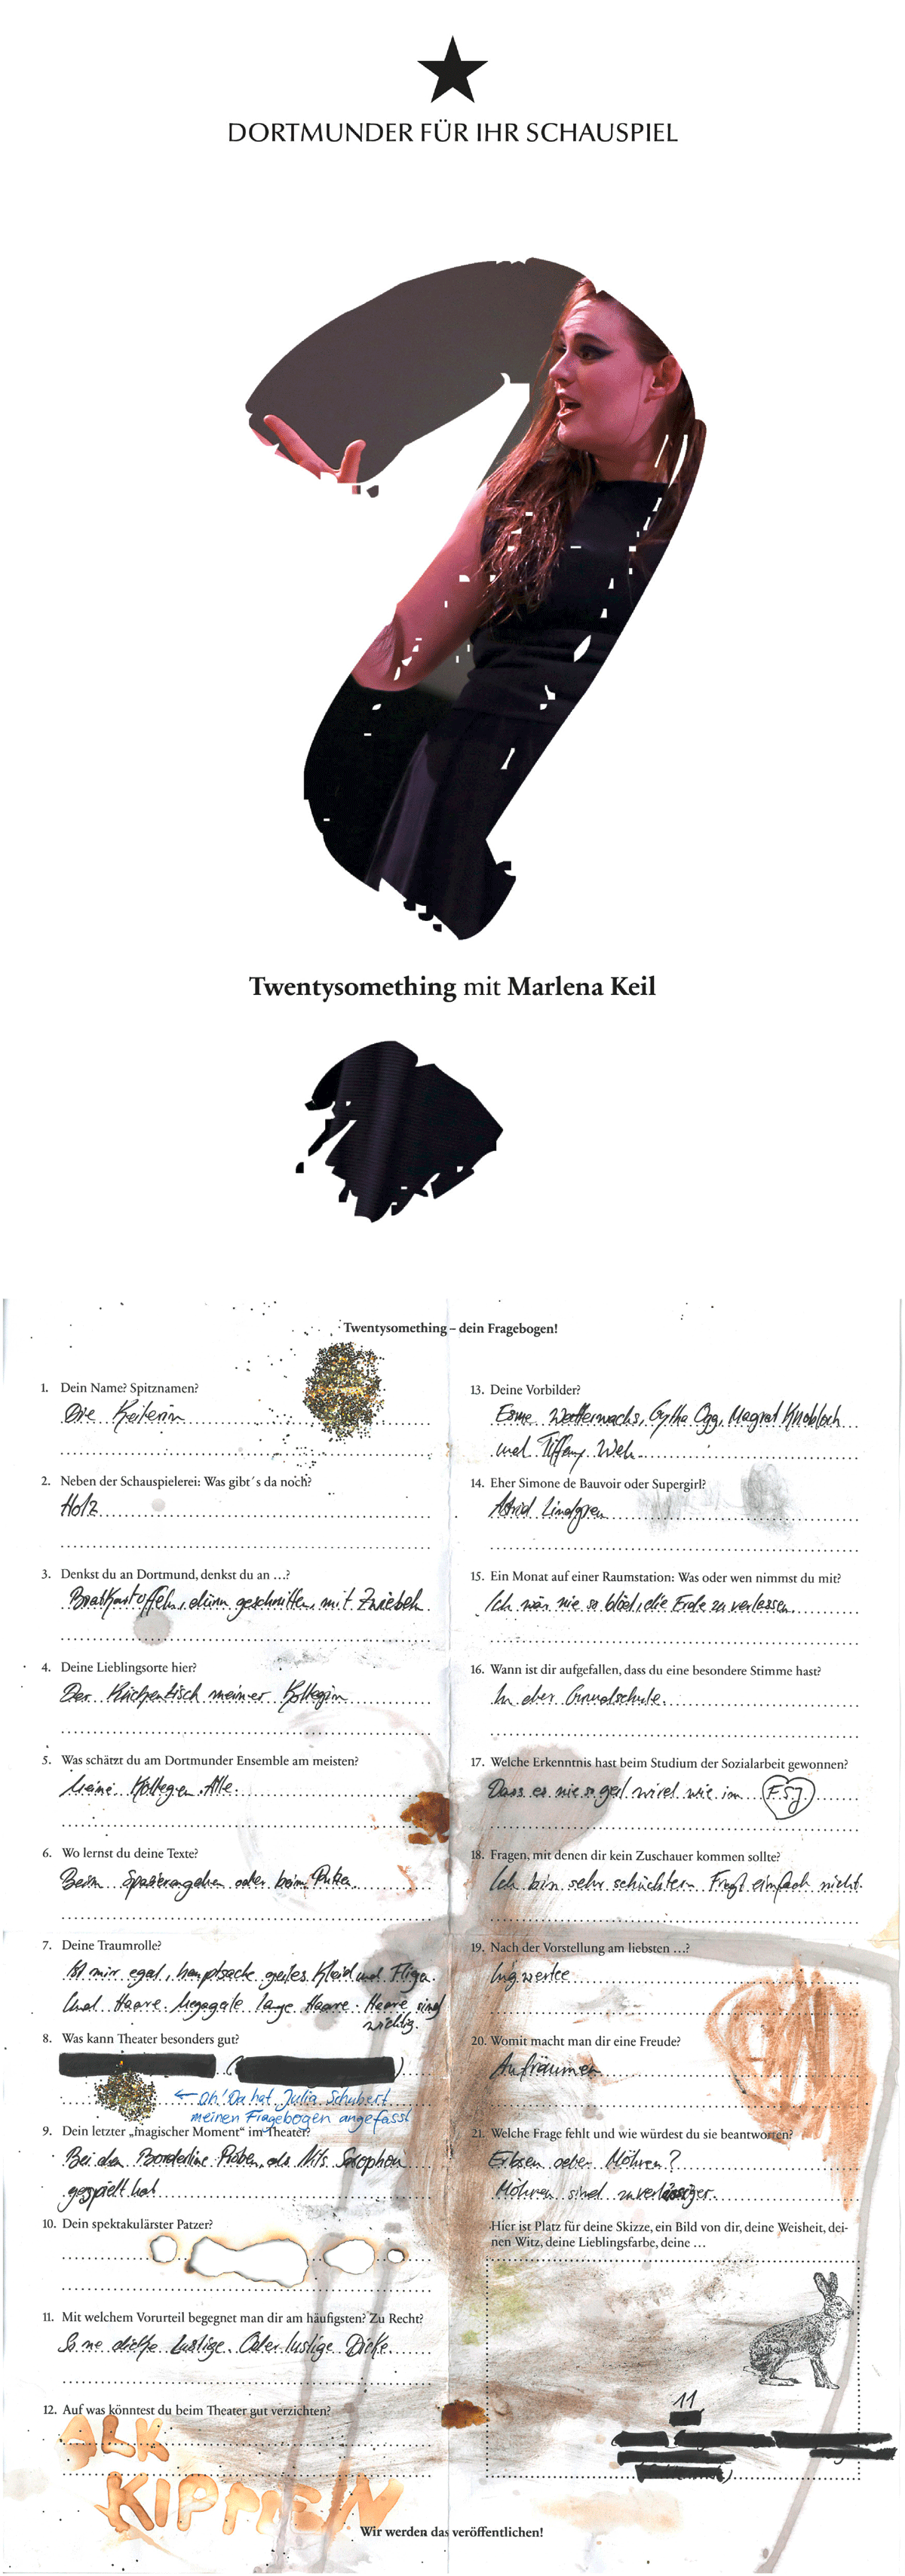 DORTMUNDER FÜR IHR SCHAUSPIEL
Twentysomething mit Marlena Keil
Twentysomething – dein Fragebogen!
1. Dein Name? Spitznamen?
Die Keilerin
2. Neben der Schauspielerei: Was gibt´s da noch?
Holz
3. Denkst du an Dortmund, denkst du an …?
Bratkartoffeln, dünn geschnitten, mit Zwiebeln
4. Deine Lieblingsorte hier?
Der Küchentisch meiner Kollegin
5. Was schätzt du am Dortmunder Ensemble am meisten?
Meine Kollegen. Alle.
6. Wo lernst du deine Texte?
Beim Spazierengehen oder beim Putzen.
7. Deine Traumrolle?
Ist mir egal, hauptsache geiles Kleid und Flügel.
Und Haare. Megageile lange Haare. Haare sind
wichtig.
8. Was kann Theater besonders gut?
( )
← Oh! Da hat Julia Schubert
meinen Fragebogen angefasst
9. Dein letzter „magischer Moment“ im Theater?
Bei den Borderline Proben, als Nils Saxophon
gespielt hat
10. Dein spektakulärster Patzer?
11. Mit welchem Vorurteil begegnet man dir am häufigsten? Zu Recht?
So ne dicke Lustige. Oder lustige Dicke.
12. Auf was könntest du beim Theater gut verzichten?
ALK
KIPPEN
13. Deine Vorbilder?
Esme Wetterwachs, Gytha Ogg, Magrat Knobloch
und Tiffany Weh.
14. Eher Simone de Bauvoir oder Supergirl?
Astrid Lindgren
15. Ein Monat auf einer Raumstation: Was oder wen nimmst du mit?
Ich wär nie so blöd, die Erde zu verlassen.
16. Wann ist dir aufgefallen, dass du eine besondere Stimme hast?
In der Grundschule.
17. Welche Erkenntnis hast beim Studium der Sozialarbeit gewonnen?
Dass es nie so geil wird wie im FSJ
18. Fragen, mit denen dir kein Zuschauer kommen sollte?
Ich bin sehr schüchtern. Fragt einfach nicht.
19. Nach der Vorstellung am liebsten …?
Ingwertee
20. Womit macht man dir eine Freude?
Aufräumen
21. Welche Frage fehlt und wie würdest du sie beantworten?
Erbsen oder Möhren?
Möhren sind zuverlässiger.
Hier ist Platz für deine Skizze, ein Bild von dir, deine Weisheit, dei-
nen Witz, deine Lieblingsfarbe, deine …
11
Wir werden das veröffentlichen!